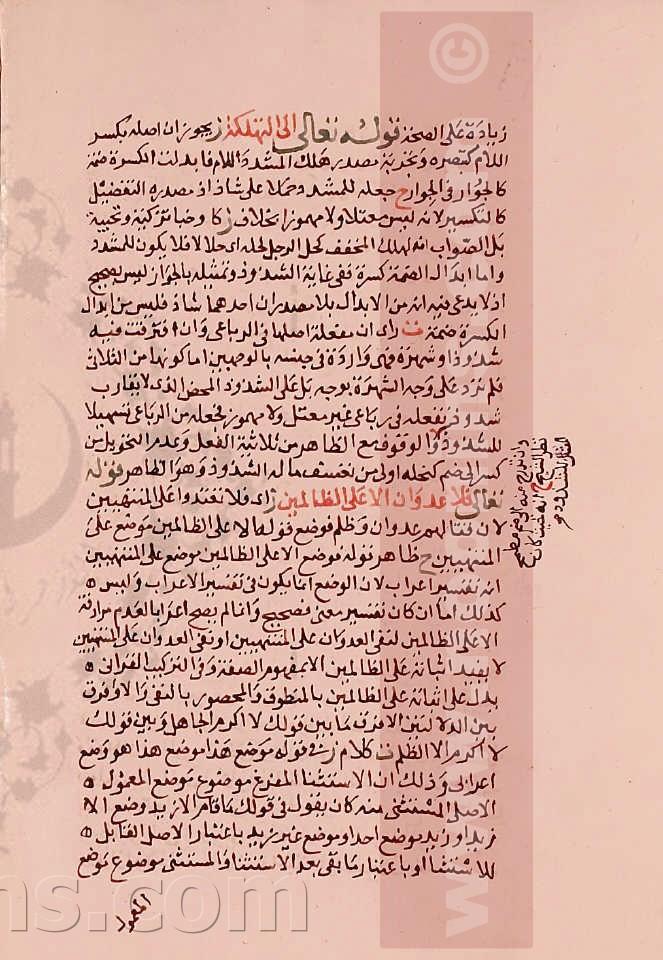 زيادة على الصحة قوله تعالى الى التهلكة ز يجوز ان اصله بكسر
اللام كتبصره وتجربة مصدر هلك المشدد اللام فابدلت الكسرة ضمة
كالجوار في الجوار ح جعله للمشدد حملا على شاذ اذ مصدره التفعيل
كالتكسير لانه ليس معتلا ولا مهموز بخلاف زكا وخبا تزكية وتخبية
بل الصواب انه لهلك المخفف كحل الرجل لحله اي حلالا فلا يكون للمشدد
واما ابدال الضمة كسرة ففي غاية الشذوذ وتمثيله بالجوار ليس بصحيح
اذ لا يدعى فيه انه من الابدال بل مصدران احدهما شاذ فليس من ابدال
الكسرة ضمة ت راى ان مفعلة اصلها في الرباعي وان افترقت فيه
شذوذا وشهرة فهي واردة في جنسه بالوجهين اما كونها من الثلاثي
فلم ترد على وجه الشهرة بوجه بل على الشذوذ المحض الذي لا يقارب
شذوذ تفعله في رباعي غير معتل ولا مهموز فجعله من الرباعي تسهيلا
للشذوذ والوقوف مع الظاهر من ثلاثية الفعل وعدم التحويل من
كسر الى ضم كجعله اولى من تعسف ماله الشذوذ وهو الظاهر قوله
تعالى فلا عدوان الا على الظالمين ز اى فلا تعتدوا على المنتهيين
لان قتالهم عدوان وظلم فوضع قوله الا على الظالمين موضع على
المنتهيين ح ظاهر قوله فوضع الا على الظالمين موضع على المنتهيين
انه تفسير اعراب لان الوضع انما يكون في تفسير الاعراب وليس
كذلك اما ان كان تفسير معنى فصحيح وانما لم يصح اعرابا لعدم مرادفة
الا على الظالمين لنفي العدوان على المنتهيين او نفي العدوان على المنتهيين
لا يفيد اثباته على الظالمين الا بمفهوم الصفة وفي التركيب القراني
يدل على اثباته على الظالمين بالمنطوق والمحصور بالنفي والا وفرق
بين الدلالتين الا فرق ما بين قولك لا اكرم الجاهل وبين قولك
لا اكرم الا كلام ز قوله موضع هذا موضع هذا هو وضع
اعرابي وذلك ان الاستثنا المفرغ موضوع موضع المعمول
الاصلي المستثنى منه كان يقول في قولك ما قام الا زيد وضع الا
زيد او زيد موضع احد او موضع غير زيد باعتبار الاصل القابل
للاستثنا او باعتبار ما بقي بعد الاستثنا والمستثنى موضوع موضع
المعمول